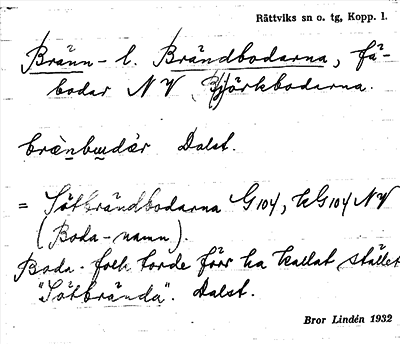 Rättviks sn o. tg, Kopp. l.
Bränn- l. Brändbodarna, fä-
bodar NV Björkbodarna.
brènbudàr Dalst.
= Sätbrändbodarna G104, kG104 NV
(Boda-namn).
Boda-folk torde förr ha kallat stället
"Sätbrända". Dalst.
Bror Lindén 1932